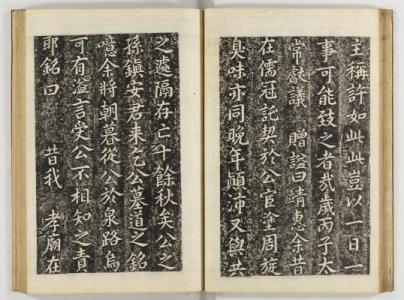 主稱許如此此豈以一日一
事可能致之者哉歲丙子太
常獻議 贈諡曰靖惠余昔
在儒冠託契於公官塗周旋
臭味亦同晚年顚沛又與共
之邈隔存亡十餘秋矣公之
孫鎭安君來乞公墓道之銘
噫余將朝暮從公於泉路烏
可有溢言失公不相知之責
耶銘曰 昔我 孝廟在